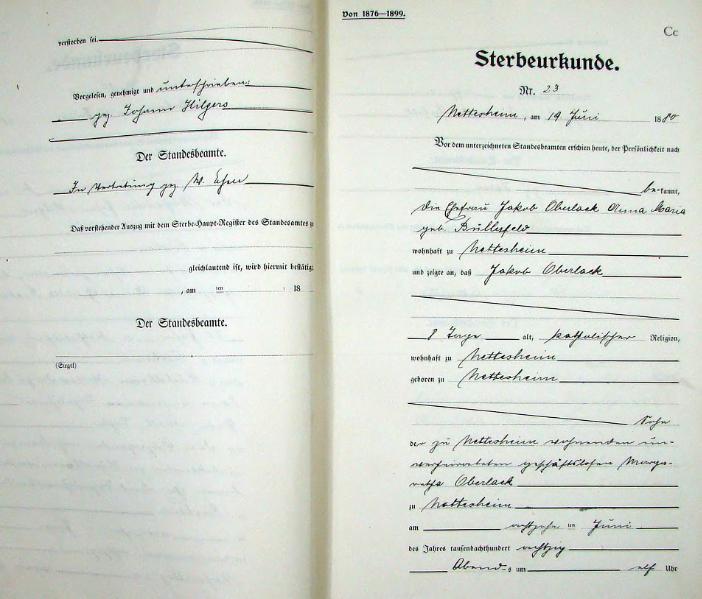 verstorben sei.
Vorgelesen, genehmigt und unterschrieben:
gez. Johann Hilgers
Der Standesbeamte.
In Vertretung gez. W.
Daß vorstehender Auszug mit dem Sterbe-Haupt-Register des Standesamtes z
gleichlautend ist, wird hiermit bestätigt
, am ten 18
Der Standesbeamte.
(Siegel)
Von 1876-1899.
Cc
Sterbeurkunde.
Nr. 23
Nettesheim, am 19 Juni 1880
Vor dem unterzeichneten Standesbeamten erschien heute, der Persönlichkeit nach
bekannt,
die Ehefrau Jakob Oberlack Anna Maria
geb. Büllesfeld
wohnhaft zu Nettesheim
und zeigte an, daß Jakob Oberlack
8 Tage alt, katholischer Religion,
wohnhaft zu Nettesheim
geboren zu Nettesheim
Sohn
der zu Nettesheim wohnenden un-
verheirateten geschäftslosen Marga-
retha Oberlack
zu Nettesheim
am achtzehn ten Juni
des Jahres tausendachthundert achtzig
Abends um elf Uhr